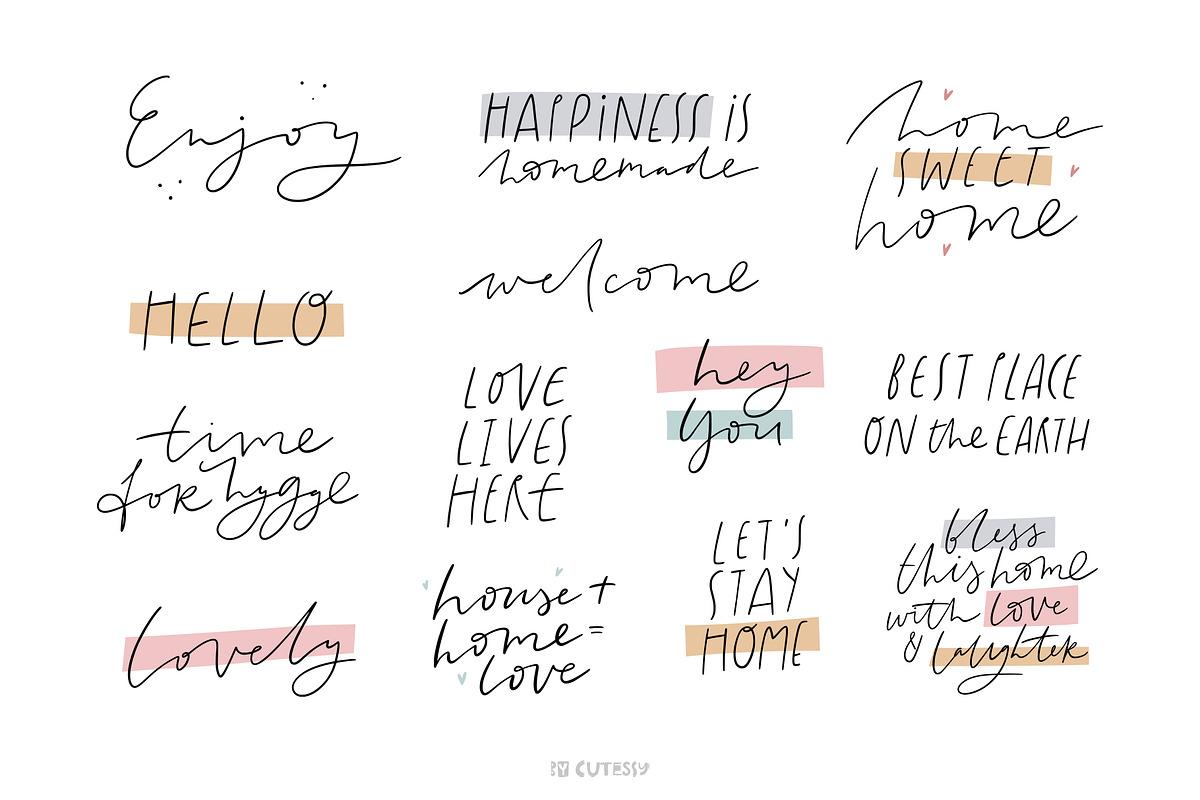 Enjoy
HAPPiNESS iS
homemade
home
SWEET
home
HELLO
welcome
time
for hygge
LOVE
LIVES
HERE
hey
you
BEST PLACE
ON the EARTH
Lovely
house +
home =
love
LET'S
STAY
HOME
bless
this home
with love
& laughter
BY CUTESSY